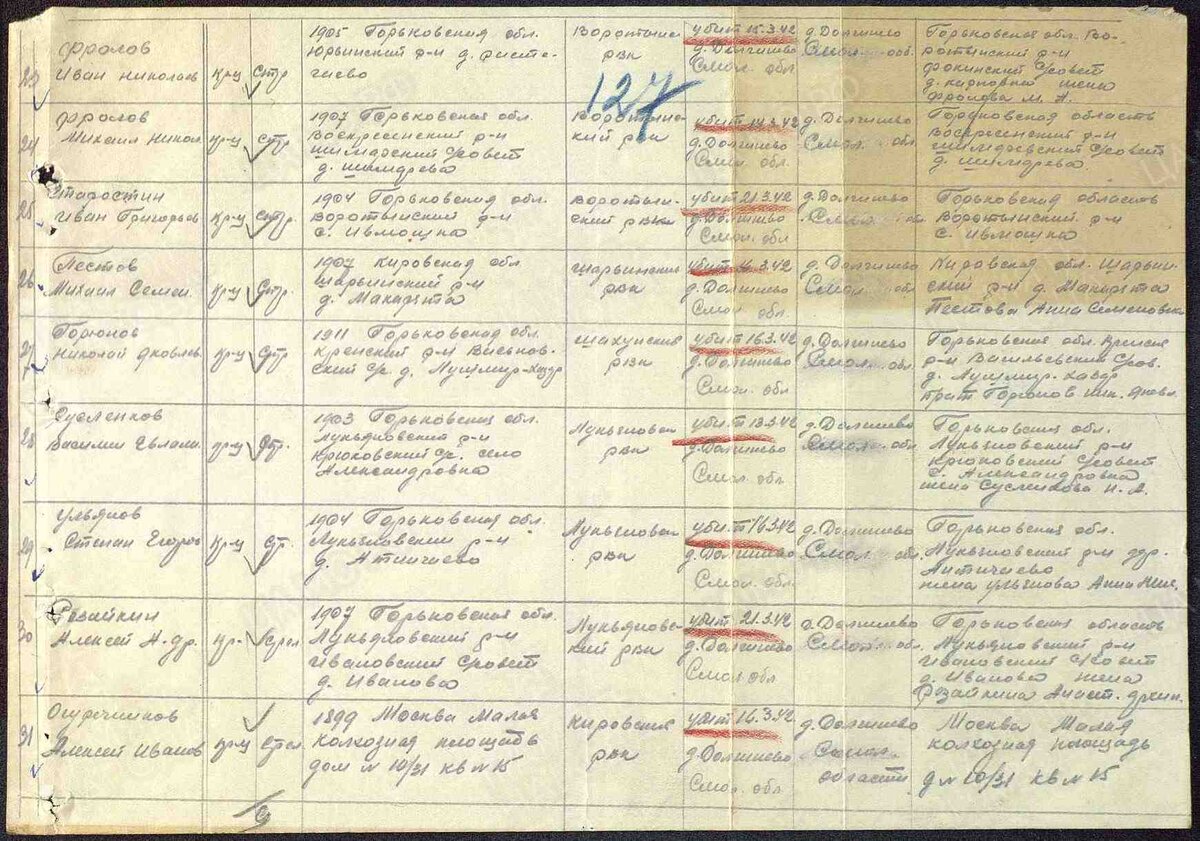 23
Фролов
Иван Николаев
кр-ц
Стр
1905 Горьковская обл.
Юрьинский р-н
Воротынс
РВК
убит 15.3.42
д. Долгинево
Смол. обл
д. Долгинево
Смол. обл.
Горьковская обл. Во-
ротынский р-н
Фокинский с/совет
д. Карповка жена
Фролова М. А.
127
24
Фролов
Михаил Никол.
кр-ц
Стр.
1907 Горьковская обл.
Воскресенский р-н
с/совет
Воротынс
кий РВК
убит 14.3.42
д. Долгинево
Смол. обл
д. Долгинево
Смол. обл.
Горьковская область
Воскресенский р-н
с/совет
25
Старостин
Иван Григорьев
кр-ц
Стр.
1904 Горьковская обл.
Воротынский р-н
с. Ивмошка
Вороты-
ский РВК
убит 21.3.42
д. Долгинево
Смол. обл
д. Долгинево
Смол. об
Горьковская область
Воротынский р-н
с. Ивмошка
26
Пестов
Михаил Семен.
кр-ц
Стр.
1907 Кировская обл.
Шарьинский р-н
д. Макарята
Шарьинский
РВК
убит 16.3.42
д. Долгинево
Смол. обл
д. Долгинево
Смол. обл.
Кировская обл. Шарьи-
ский р-н д. Макарята
Пестова Анна Семеновна
27
Горюнов
Николай Яковлев.
кр-ц
Стр.
1911 Горьковская обл.
р-н
ский с/с. д.
Шахунский
РВК
убит 16.3.42
д. Долгинево
Смол. обл
д. Долгинево
Смол. обл
Горьковская обл.
р-н Васильевский с/сов.
д.
брат Горюнов Ник. Яковл.
28
Сусленков
Василий
кр-ц
Стр.
1903 Горьковская обл.
Лукьяновский р-н
Крюковский с/с. село
Александровка
Лукьяновск
РВК
убит 13.3.42
д. Долгинево
Смол. обл
д. Долгинево
Смол. обл
Горьковская обл.
Лукьяновский р-н
Крюковский с/совет
с. Александровка
жена Сусленкова Н. А.
29
Ульянов
Степан Егоров
кр-ц
Стр.
1904 Горьковская обл.
Лукьяновский р-н
д. Атингеево
Лукьяновск
РВК
убит 16.3.42
д. Долгинево
Смол. обл
д. Долгинево
Смол. обл.
Горьковская обл.
Лукьяновский р-н дер.
жена Ульянова Анна
30
Резайкин
Алексей А-др.
кр-
Стрел
1907 Горьковская обл.
Лукьяновский р-н
Ивановский с/совет
д. Иваново
Лукьяновс-
кий РВК
убит 21.3.42
д. Долгинево
Смол. обл
д. Долгинево
Смол. обл.
Горьковская область
Лукьяновский р-н
Ивановский с/совет
д. Иваново жена
Резайкина Анаст.
31
Огуречников
Алексей Иванов
кр-ц
Стрел.
1899 Москва Малая
Колхозная площадь
дом № 10/31 кв № 15
Кировский
РВК
убит 16.3.42
д. Долгинево
Смол. обл
д. Долгинево
Смол.
области
Москва Малая
Колхозная площадь
д № 10/31 кв № 15